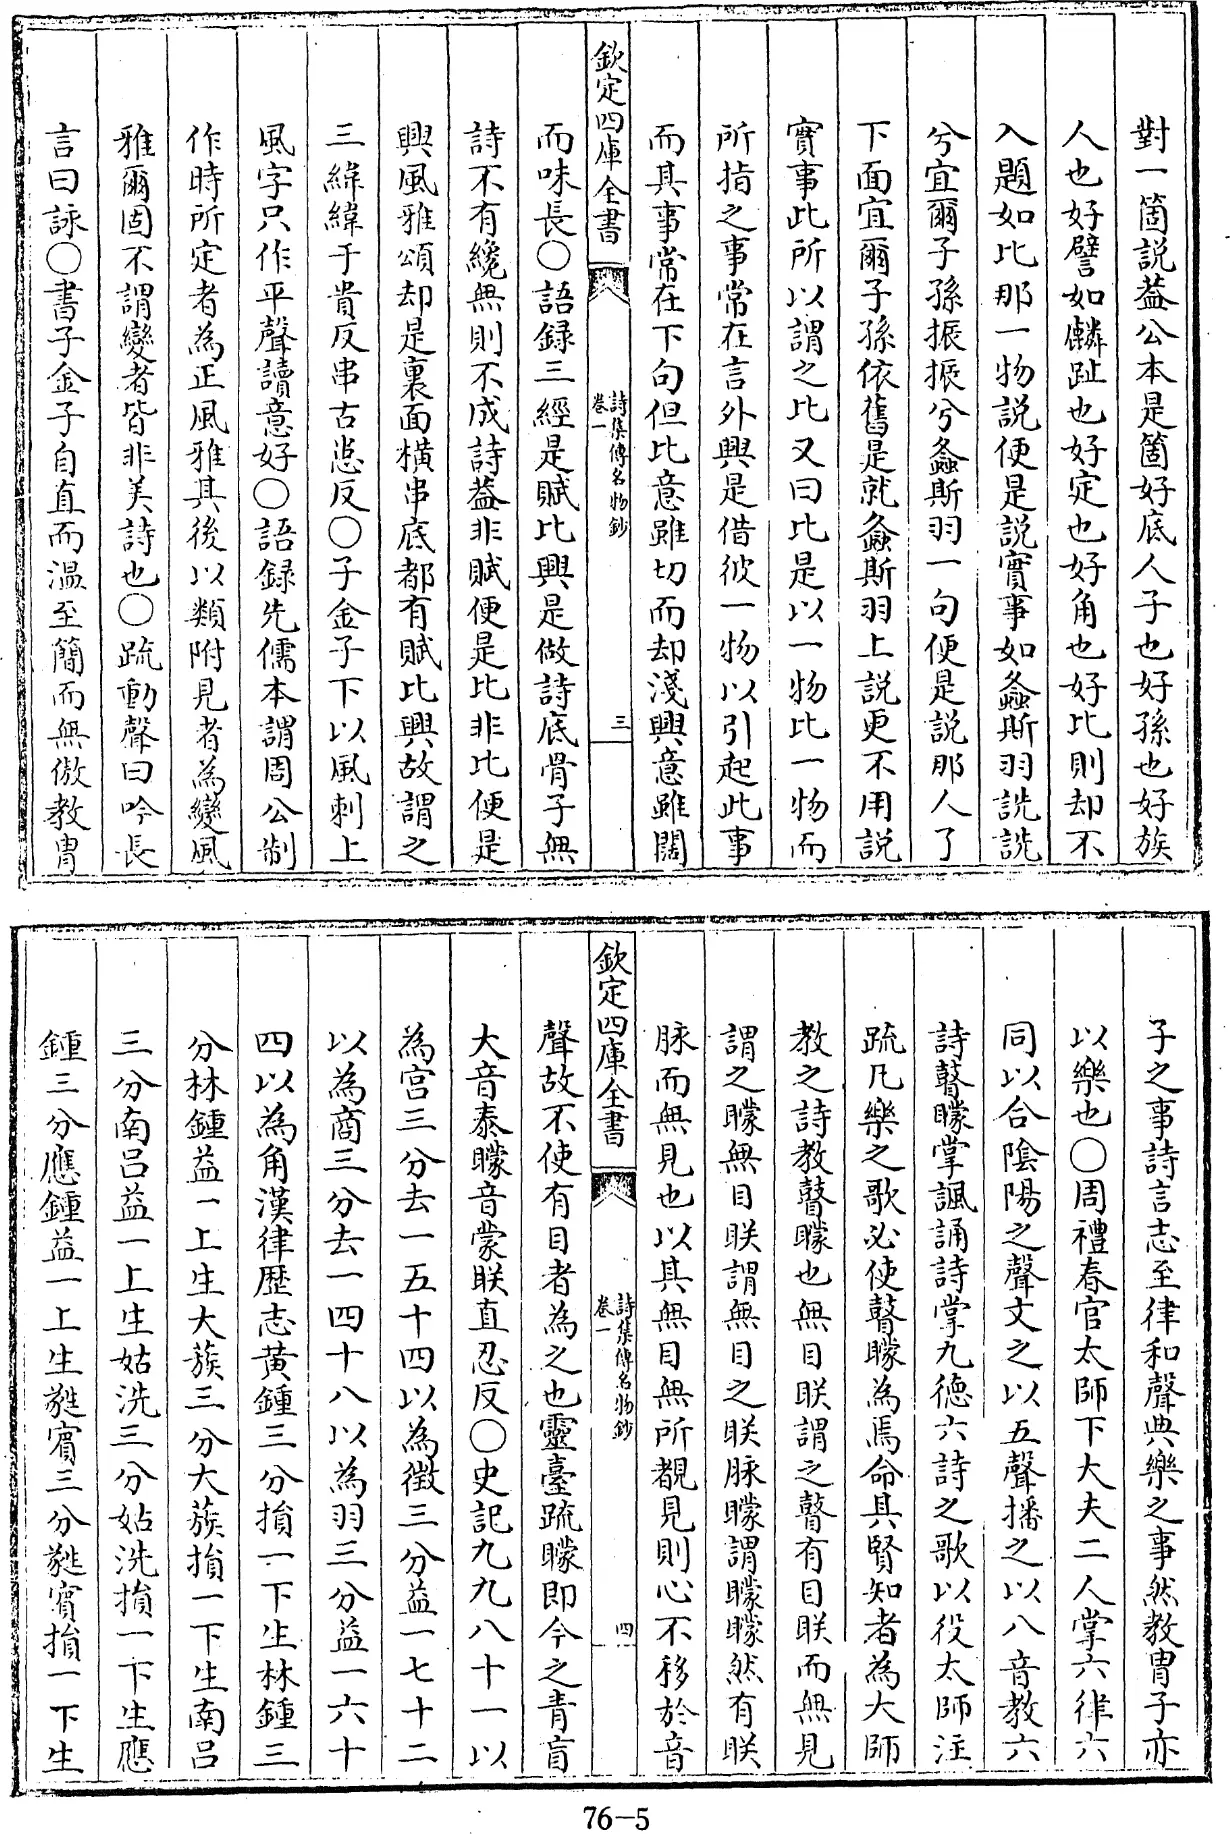 對一箇説葢公本是箇好底人子也好孫也好族
人也好譬如麟趾也好定也好角也好比則却不
入題如比那一物説便是説實事如螽斯羽詵詵
兮宜爾子孫振振兮螽斯羽一句便是説那人了
下面宜爾子孫依舊是就螽斯羽上説更不用説
實事此所以謂之比又曰比是以一物比一物而
所指之事常在言外興是借彼一物以引起此事
而其事常在下句但比意雖切而却淺興意雖闊
欽定四庫全書
詩集傳名物鈔
卷一
三
而味長○語録三經是賦比興是做詩底骨子無
詩不有纔無則不成詩葢非賦便是比非比便是
興風雅頌却是裏面横串底都有賦比興故謂之
三緯緯于貴反串古患反○子金子下以風刺上
風字只作平聲讀意好○語録先儒本謂周公制
作時所定者為正風雅其後以類附見者為變風
雅爾固不謂變者皆非美詩也○疏動聲曰吟長
言曰詠○書子金子自直而溫至簡而無傲教胄
子之事詩言志至律和聲典樂之事然教胄子亦
以樂也○周禮春官太師下大夫二人掌六律六
同以合陰陽之聲文之以五聲播之以八音教六
詩瞽矇掌諷誦詩掌九德六詩之歌以役太師注
疏凡樂之歌必使瞽矇為焉命其賢知者為大師
教之詩教瞽矇也無目眹謂之瞽有目眹而無見
謂之矇無目眹謂無目之眹脉矇謂矇矇然有眹
脉而無見也以其無目無所覩見則心不移於音
欽定四庫全書
詩集傳名物鈔
卷一
四
聲故不使有目者為之也靈臺疏矇即今之青盲
大音泰矇音蒙眹直忍反○史記九九八十一以
為宮三分去一五十四以為徵三分益一七十二
以為商三分去一四十八以為羽三分益一六十
四以為角漢律歴志黄鍾三分損一下生林鍾三
分林鍾益一上生大蔟三分大蔟損一下生南呂
三分南呂益一上生姑洗三分姑洗損一下生應
鍾三分應鍾益一上生蕤賓三分蕤賓損一下生
76-5